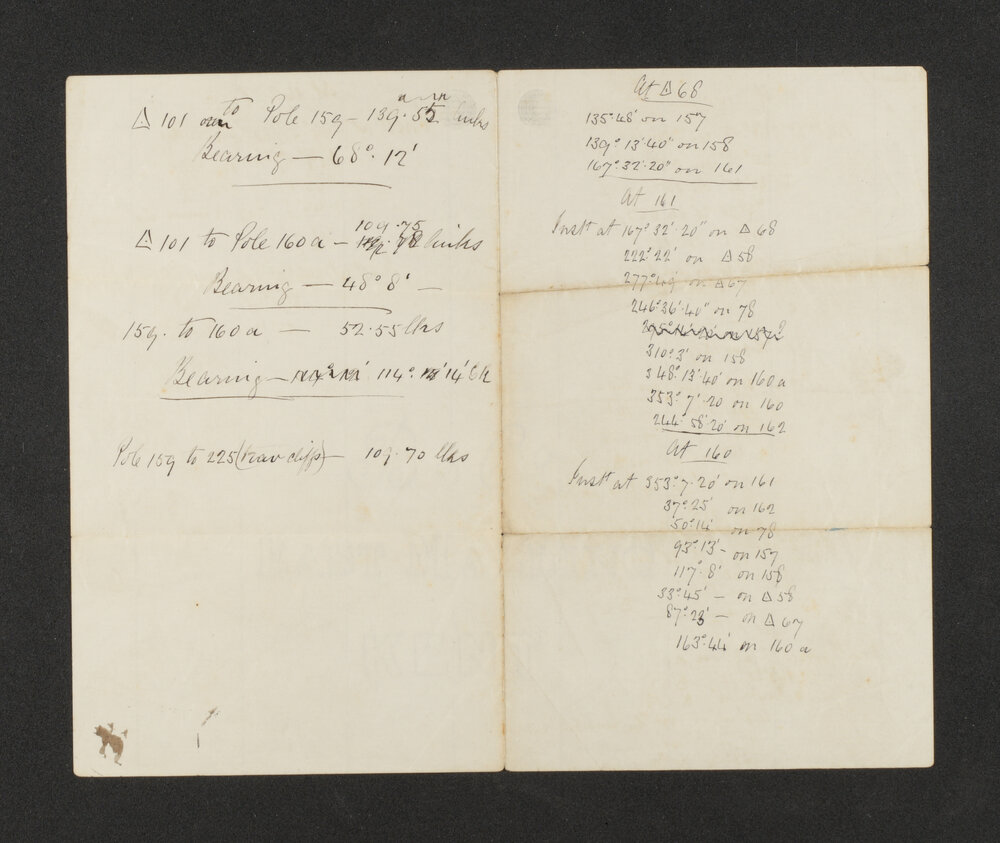 △ 101 to Pole 159 — 139. links
Bearing — 68°. 12'
109.75
△ 101 to Pole 160a — links
Bearing — 48° 8' —
159. to 160a — 52.55 lks
Bearing — 114°. 14'
Pole 159 to 225 (trav cliffs) — 109.70 lks
At △ 68
135°48' on 157
139°.13'.40" on 158
167°.32'.20" on 161
At 161
Inst at 167° 32'.20" on △ 68
222°22' on △ 58
277°.49' on △ 67
246°36'.40" on 78
310°.3' on 158
348°.13'.40' on 160a
353°.7'.20 on 160
244°.58'.20' on 162
At 160
Inst at 353°.7.20' on 161
37°.25' on 162
50°.14' on 78
93°.13' - on 157
117°.8' on 158
33°.45' — on △ 58
87°.23' — on △ 67
163°.44' on 160a